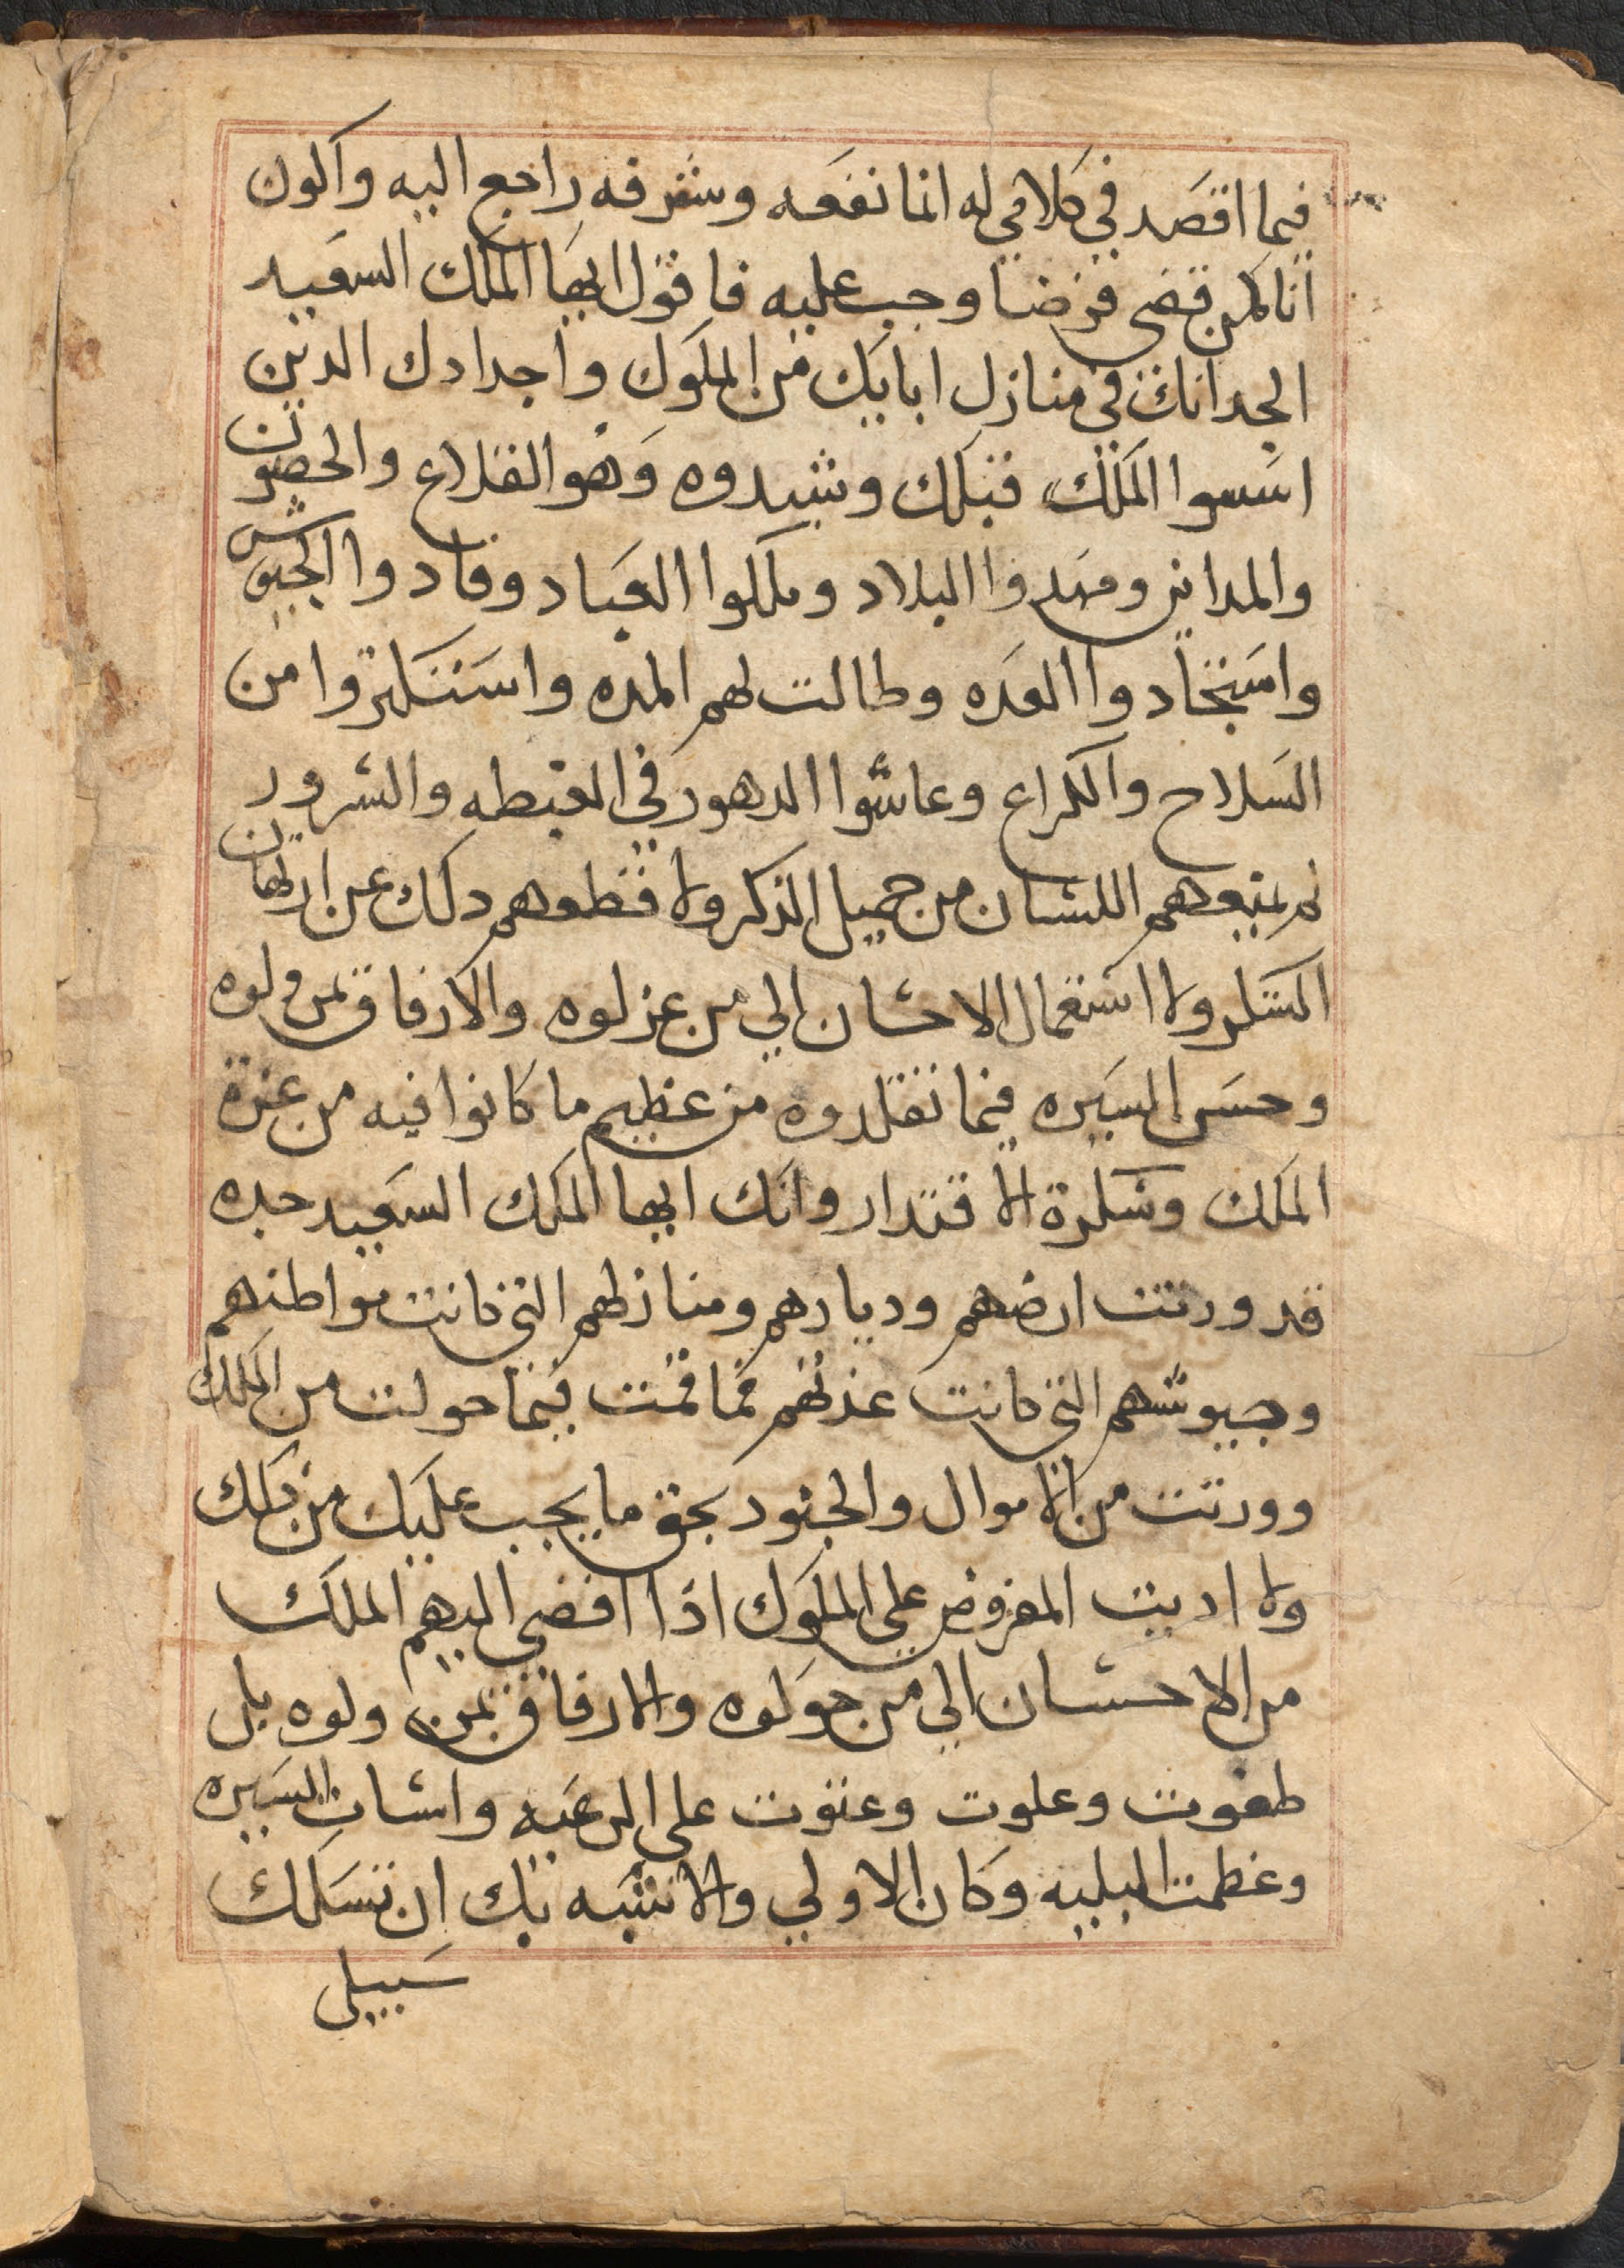 فيما اقصد في كلامي له انما نفعه وشرفه راجع اليه واكون
انا كمن قضي فرضا وجب عليه فاقول ايها الملك السعيد
الجد انك في منازل ابايك من الملوك واجدادك الدين
اسسوا الملك قبلك وشيدوه وهو القلاع والحصون
والمداين ومهدوا البلاد وملكوا العباد وقادوا الجيوش
واستجادوا العده وطالت لهم المده واستكتروا من
السلاح والكراع وعاشوا الدهور في الغبطه والسرور
لم يمنعهم اللسان من جميل الذكر ولا قطعهم دلك عن ارتهان
الشكر ولا استعمال الاحسان الي من عزلوه والارفاق بمن ولوه
وحسن السيره فيما تقلدوه من عظيم ما كانوا فيه من عزة
الملك وسكرة الاقتدار وانك ايها الملك السعيد جده
قد ورتت ارضهم وديارهم ومنازلهم التي كانت مواطنهم
وجيوشهم التي كانت عدتهم فما قمت فيما حولت من الملك
وورتت من الاموال والجنود بحق ما يجب عليك من دلك
ولا اديت المفروض علي الملوك اذا افضي اليهم الملك
من الاحسان الي من حولوه والارفاق بمن ولوه بل
طغوت وعلوت وعتوت علي الرعيه واسات السيره
وعظمت البليه وكان الاولي والاشبه بك ان تسلك
سبيل